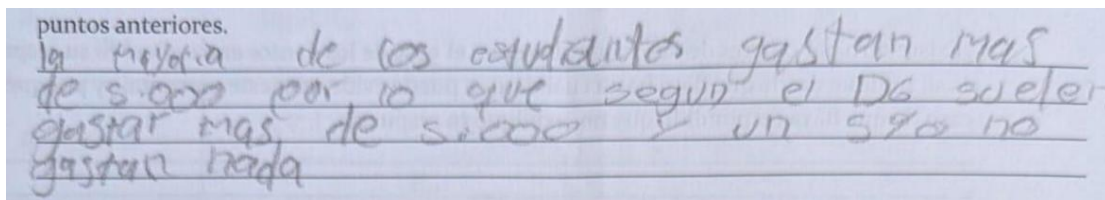 puntos anteriores.
la mayoria de los estudiantes gastan mas
de 5.000 por lo que segun el D6 suelen
gastar mas de 5.000 y un 5% no
gastan nada